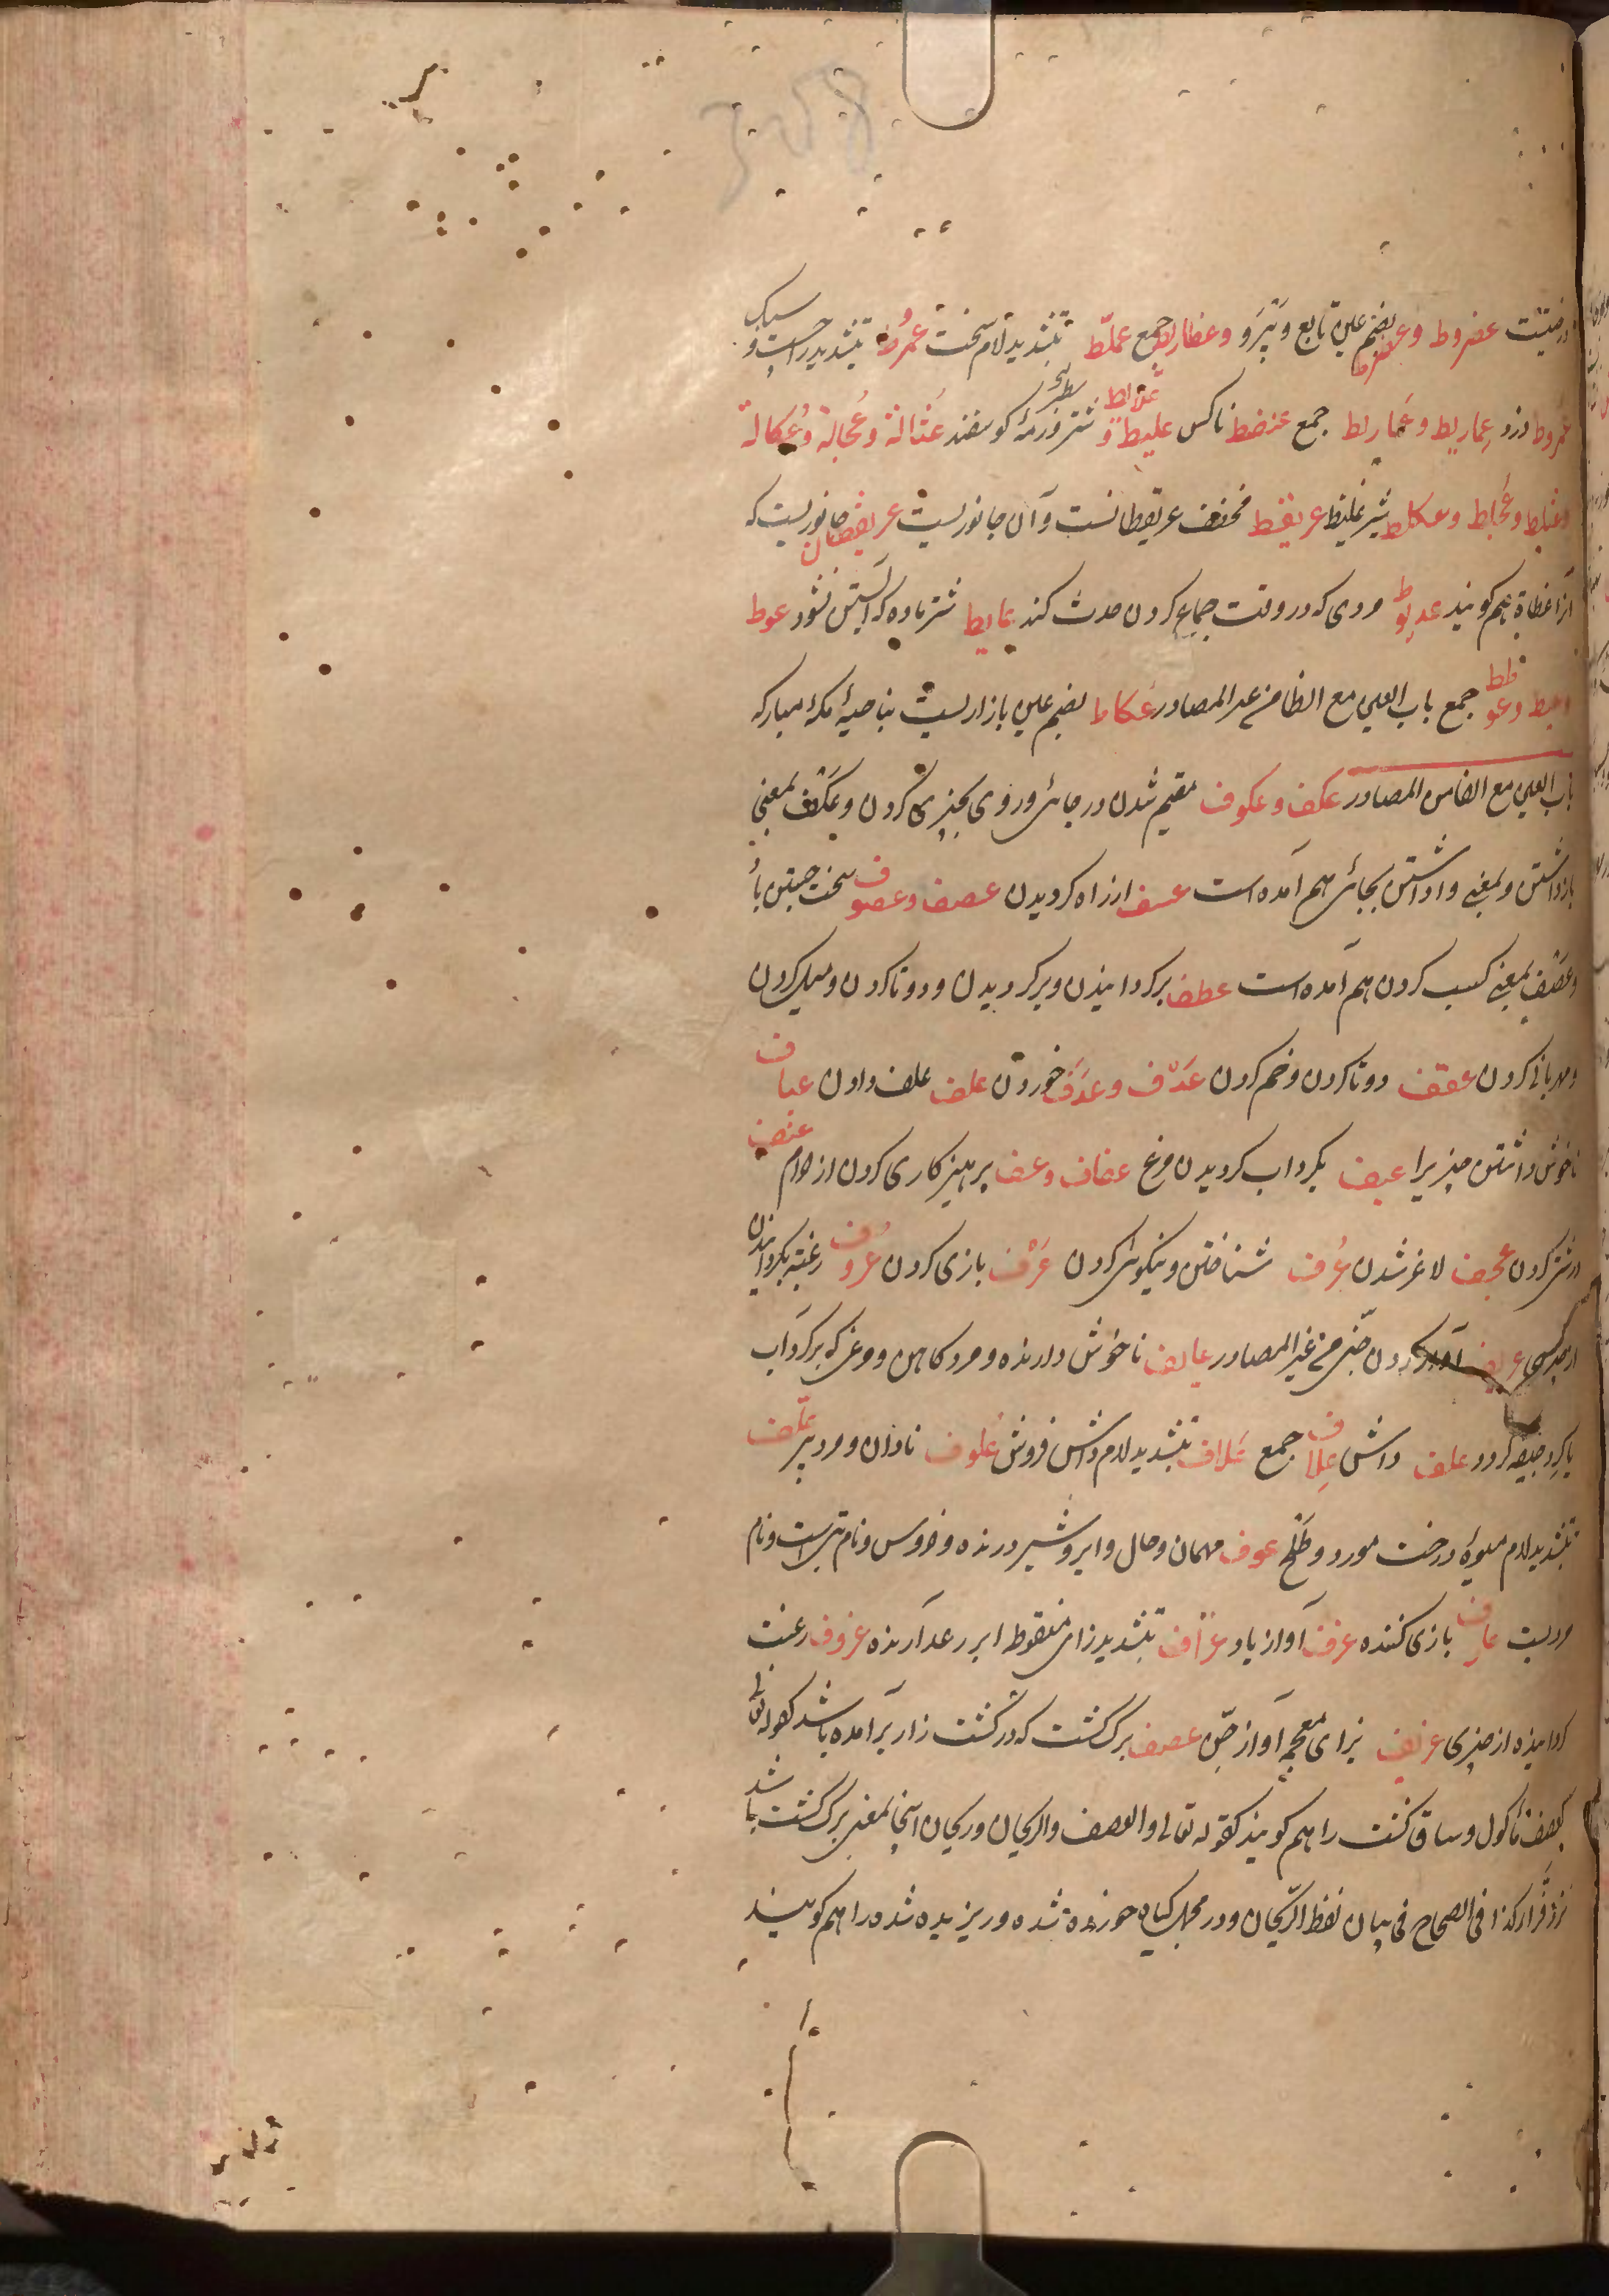 درختیست عضروط وعضرط بضم عین تابع و پیرو وعضاریط جمع عملّط بتشدید لام سخت عمرّط بتشدید را چست و سبک
عمروط دزد عماریط وعمارط جمع عنضط ناکس علیط وعلابط شتر و رمهٔ کوسفند عثالة وعجالة وعکالة
وعثلط وعجلط وعکلط شیر غلیظ عریقط مخفف عریقطانست وآن جانوریست عریقطان جانوریست که
آنرا عظاة هم کویند عدیوط مردی که در وقت جماع کردن حدث کند عایط شتر ماده که آبستن نشود عوط
وعیط وعوطط جمع باب العین مع الظا من غیر المصادر عکاظ بضم عین بازاریست بناحیهٔ مکهٔ مبارکه
باب العین مع الفا من المصادر عکف وعکوف مقیم شدن در جائی و روی بچیزی کردن و عکف بمعنی
بازداشتن و بمعنی واداشتن بجائی هم آمده است عسف از راه کردیدن عصف وعصوف سخت جستن باد
وعصف بمعنی کسب کردن هم آمده است عطف برکردانیدن و برکردیدن و دوتا کردن و میل کردن
ومهربانی کردن عقف دوتا کردن و خم کردن عدف وعدف خوردن علف علف دادن عیاف
ناخوش داشتن چیزیرا عیف بکرد آب کردیدن مرغ عفاف وعف پرهیزکاری کردن از حرام عنف
درشتی کردن عجف لاغر شدن عرف شناختن و نیکوئی کردن عزف بازی کردن عزوف رغبت بکردانیدن
از چیزی عزیف آواز کردن جنّی من غیر المصادر عایف ناخوش دارنده و مرد کاهن و مرغی که برکرد آب
یا کرد جیفه کردد علف داش علاف جمع علّاف بتشدید لام داش فروش علوف نادان و مرد پیر علّف
بتشدید لام میوهٔ درخت مورد و طلح عوف مهمان و حال و ایر و شیر درنده و خروس و نام بتی است و نام
مردیست عازف بازی کننده عزف آواز باد عزّاف بتشدید زای منقوط ابر رعد آرنده عزوف رغبت
کردانیده از چیزی عزیف بزای معجمه آواز جنّ عصف برک کشت که در کشت زار برآمده باشد کقوله تعالی
کعصف مأکول و ساق کشت را هم کویند کقوله تعالی والعصف والریحان و ریحان اینجا بمعنی برک کشت باشد
نزد فرّا کذا فی الصحاح فی بیان لفظ الریحان و در مجمل کیاه خورده شده و ریزیده شده را هم کویند